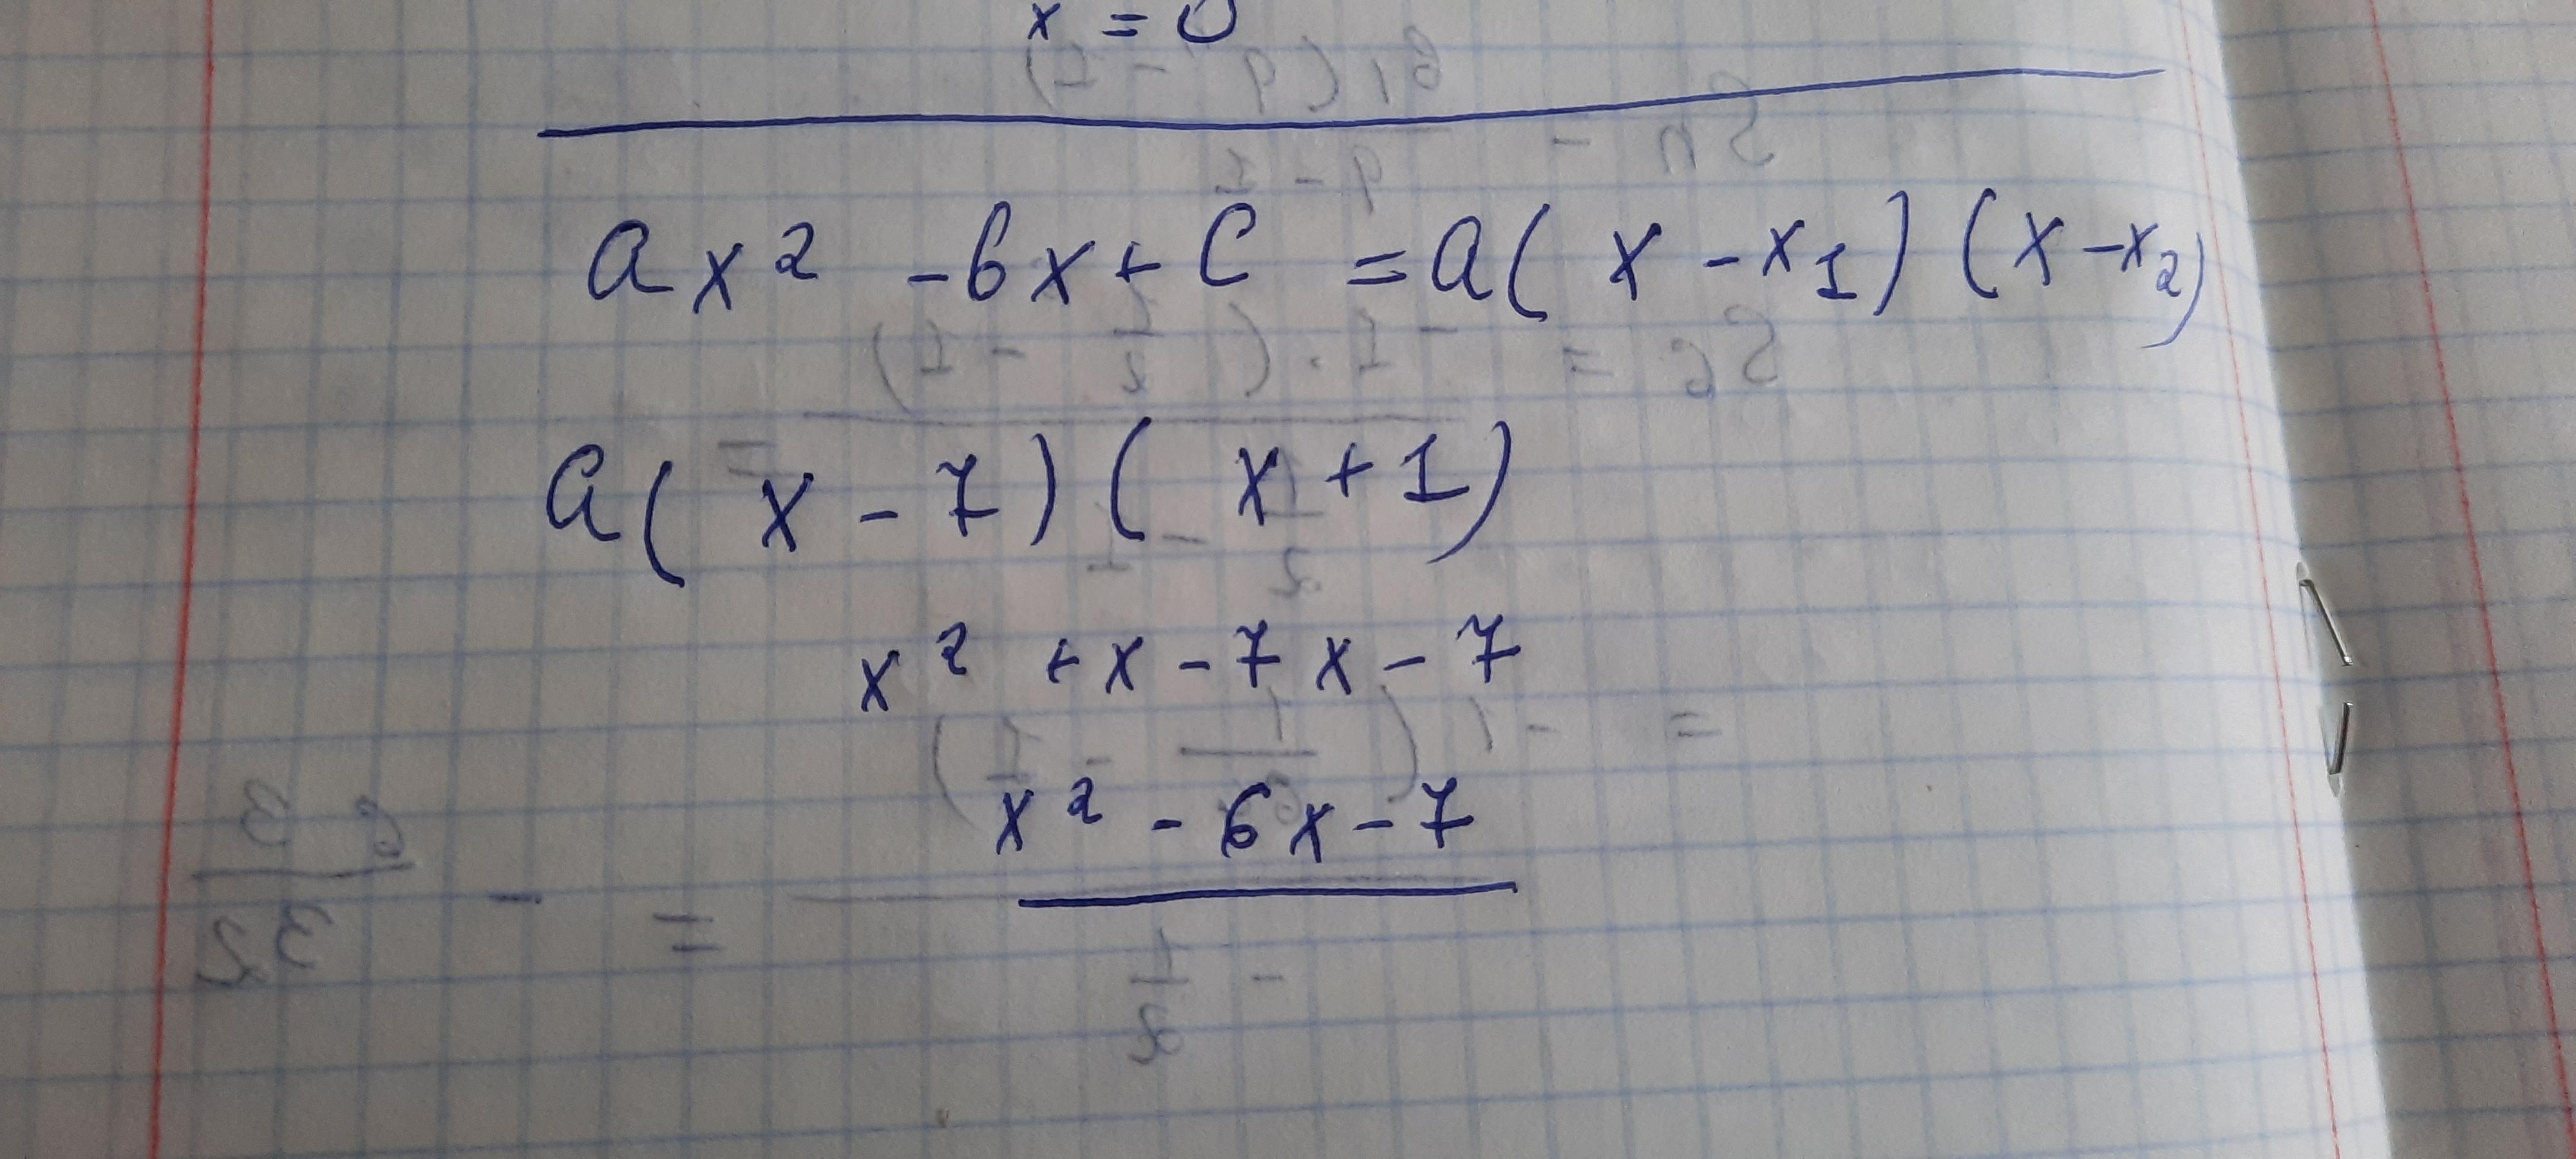 x = 0
ax² - bx + c = a(x - x₁)(x - x₂)
a(x - 7)(x + 1)
x² + x - 7x - 7
x² - 6x - 7